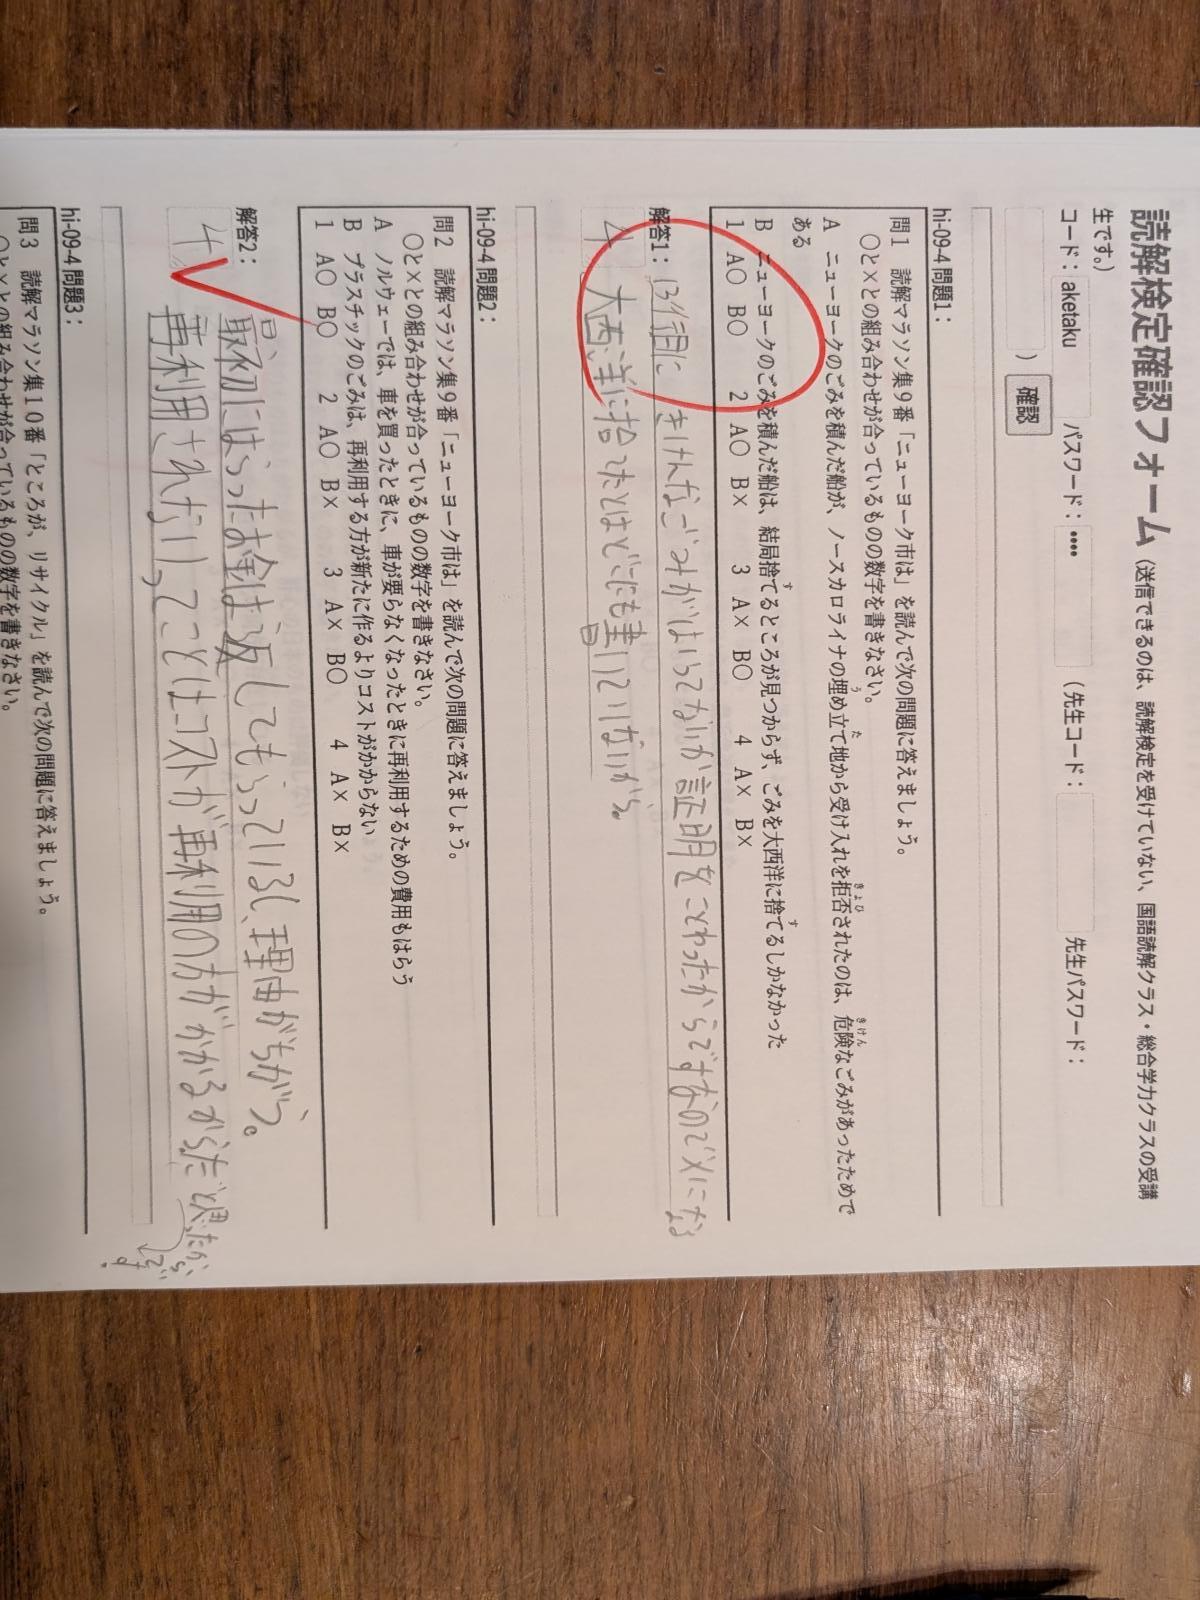 読解検定確認フォーム（送信できるのは、読解検定を受けていない、国語読解クラス・総合学力クラスの受講
生です。）
コード：aketaku パスワード：•••• （先生コード： 先生パスワード：
） 確認
hi-09-4 問題1：
問１ 読解マラソン集９番「ニューヨーク市は」を読んで次の問題に答えましょう。
○と×との組み合わせが合っているものの数字を書きなさい。
Ａ ニューヨークのごみを積んだ船が、ノースカロライナの埋め立て地から受け入れを拒否されたのは、危険なごみがあったためで
ある
Ｂ ニューヨークのごみを積んだ船は、結局捨てるところが見つからず、ごみを大西洋に捨てるしかなかった
1 A○ B○ 2 A○ B× 3 A× B○ 4 A× B×
解答1：
13行目にきけんなごみがはいってないか証明をことわったからですなので×になる
4 大西洋に捨てたとはどこにも書いていないから。
hi-09-4 問題2：
問２ 読解マラソン集９番「ニューヨーク市は」を読んで次の問題に答えましょう。
○と×との組み合わせが合っているものの数字を書きなさい。
Ａ ノルウェーでは、車を買ったときに、車が要らなくなったときに再利用するための費用もはらう
Ｂ プラスチックのごみは、再利用する方が新たに作るよりコストがかからない
1 A○ B○ 2 A○ B× 3 A× B○ 4 A× B×
解答2：
最初にはらったお金は返してもらっているし、理由がちがう。
4 再利用されないってことはコストが再利用の方がかかるからだと思ったからです。
hi-09-4 問題3：
問３ 読解マラソン集１０番「ところが、リサイクル」を読んで次の問題に答えましょう。
○と×との組み合わせが合っているものの数字を書きなさい。